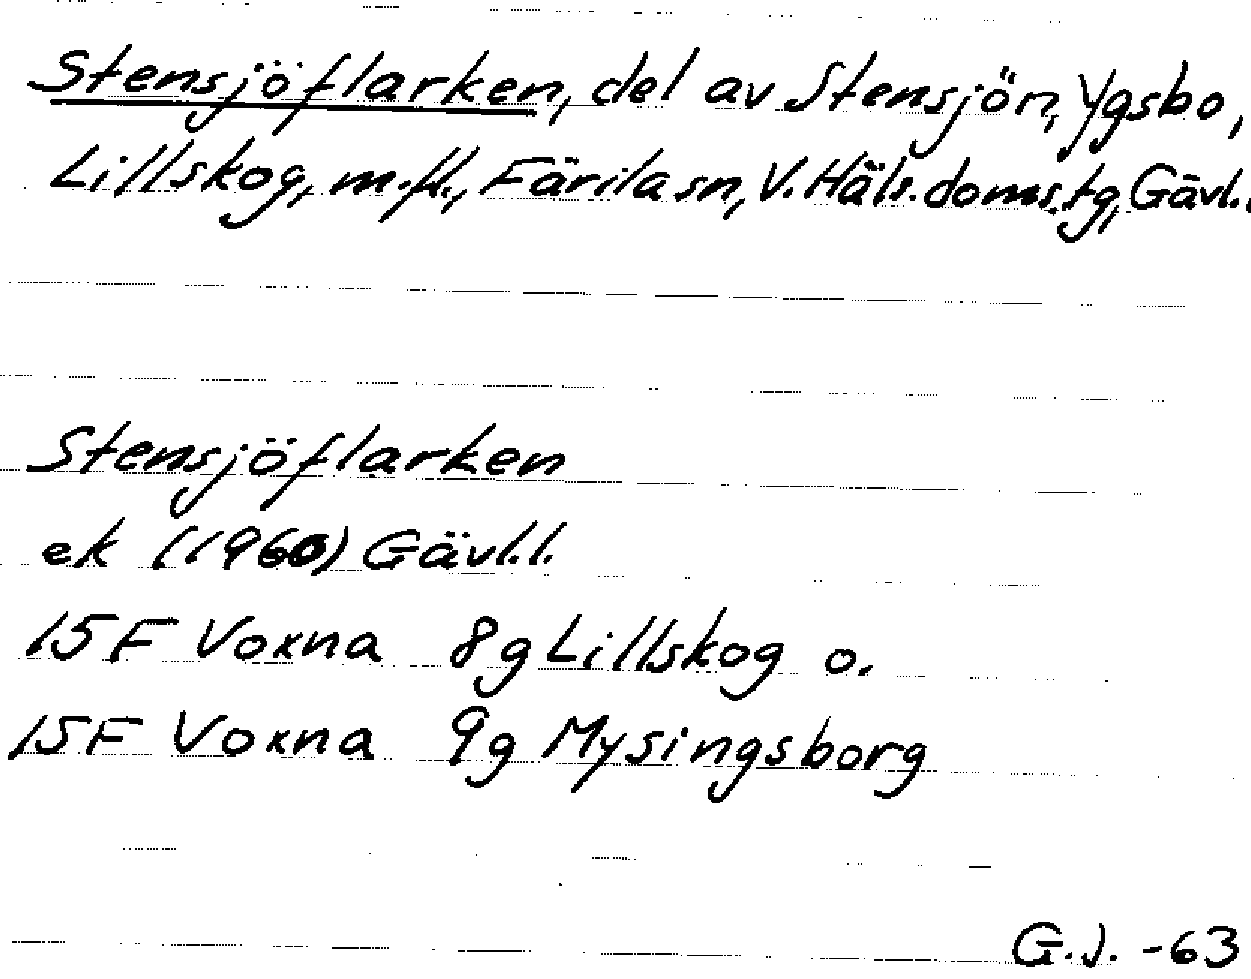 Stensjöflarken, del av Stensjön, Ygsbo,
Lillskog, m.fl., Färila sn, V. Häls. doms.tg, Gävl.l.
Stensjöflarken
ek (1960) Gävl.l.
15F Voxna 8g Lillskog o.
15F Voxna 9g Mysingsborg
G.J. -63